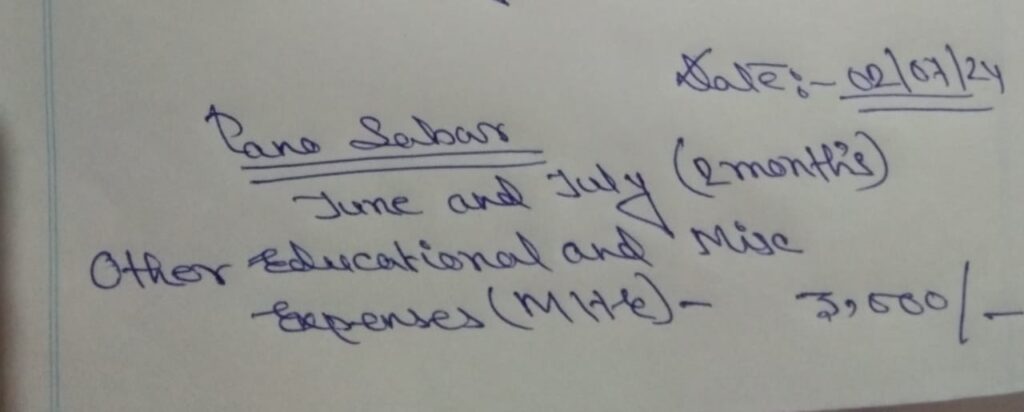 Date:- 02/07/24
Pano Sabar
June and July (2 month's)
Other Educational and Misc
Expenses (MHE)- 3,000/-